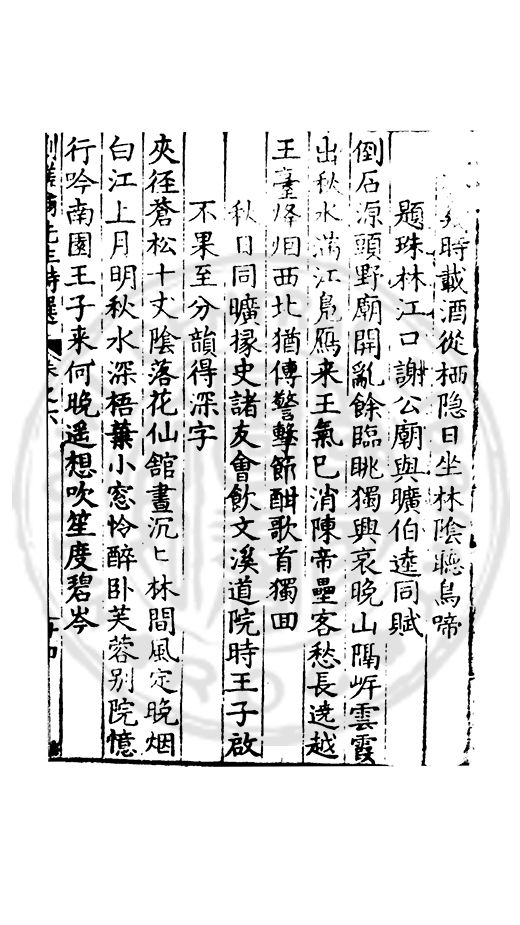 時載酒從栖隐日坐林陰聽鳥啼
題珠林江口謝公廟與曠伯逵同賦
倒石源頭野廟開亂餘臨眺獨興哀晚山隔岸雲霞
出秋水滿江鳬鴈来王氣已消陳帝壘客愁長遶越
王臺烽烟西北猶傳警擊節酣歌首獨囬
秋日同曠掾史諸友會飲文溪道院時王子啟
不果至分韻得深字
夾徑蒼松十丈陰落花仙舘晝沉〻林間風定晚烟
白江上月明秋水深梧葉小窓怜醉卧芙蓉别院憶
行吟南園王子来何晚遥想吹笙度碧岑
先生詩選 卷之六